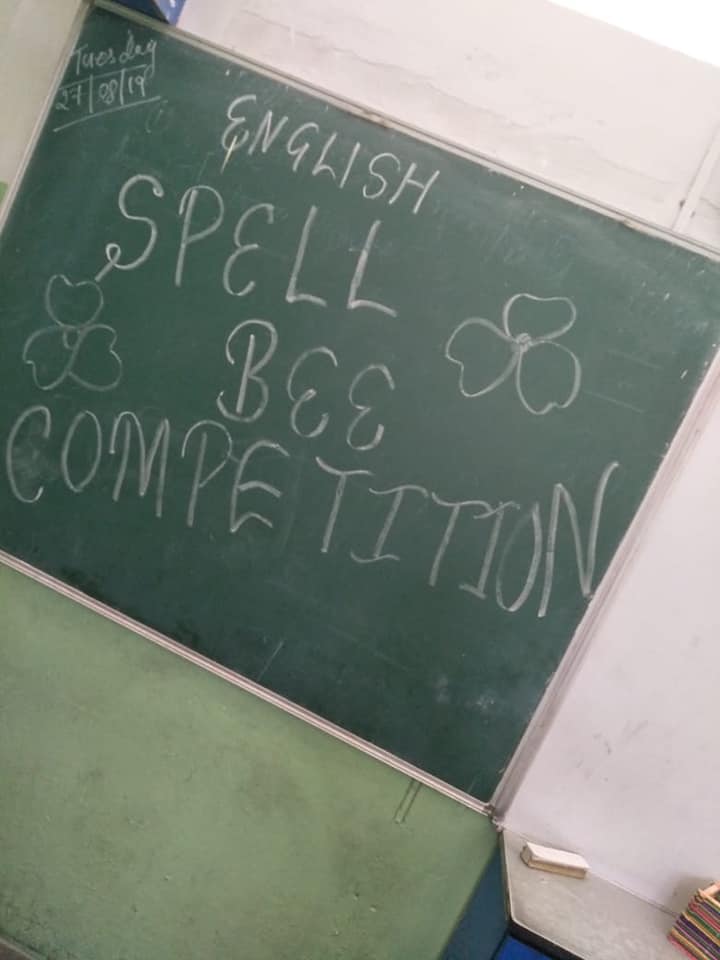 Tuesday
27/08/19
ENGLISH
SPELL
BEE
COMPETITION